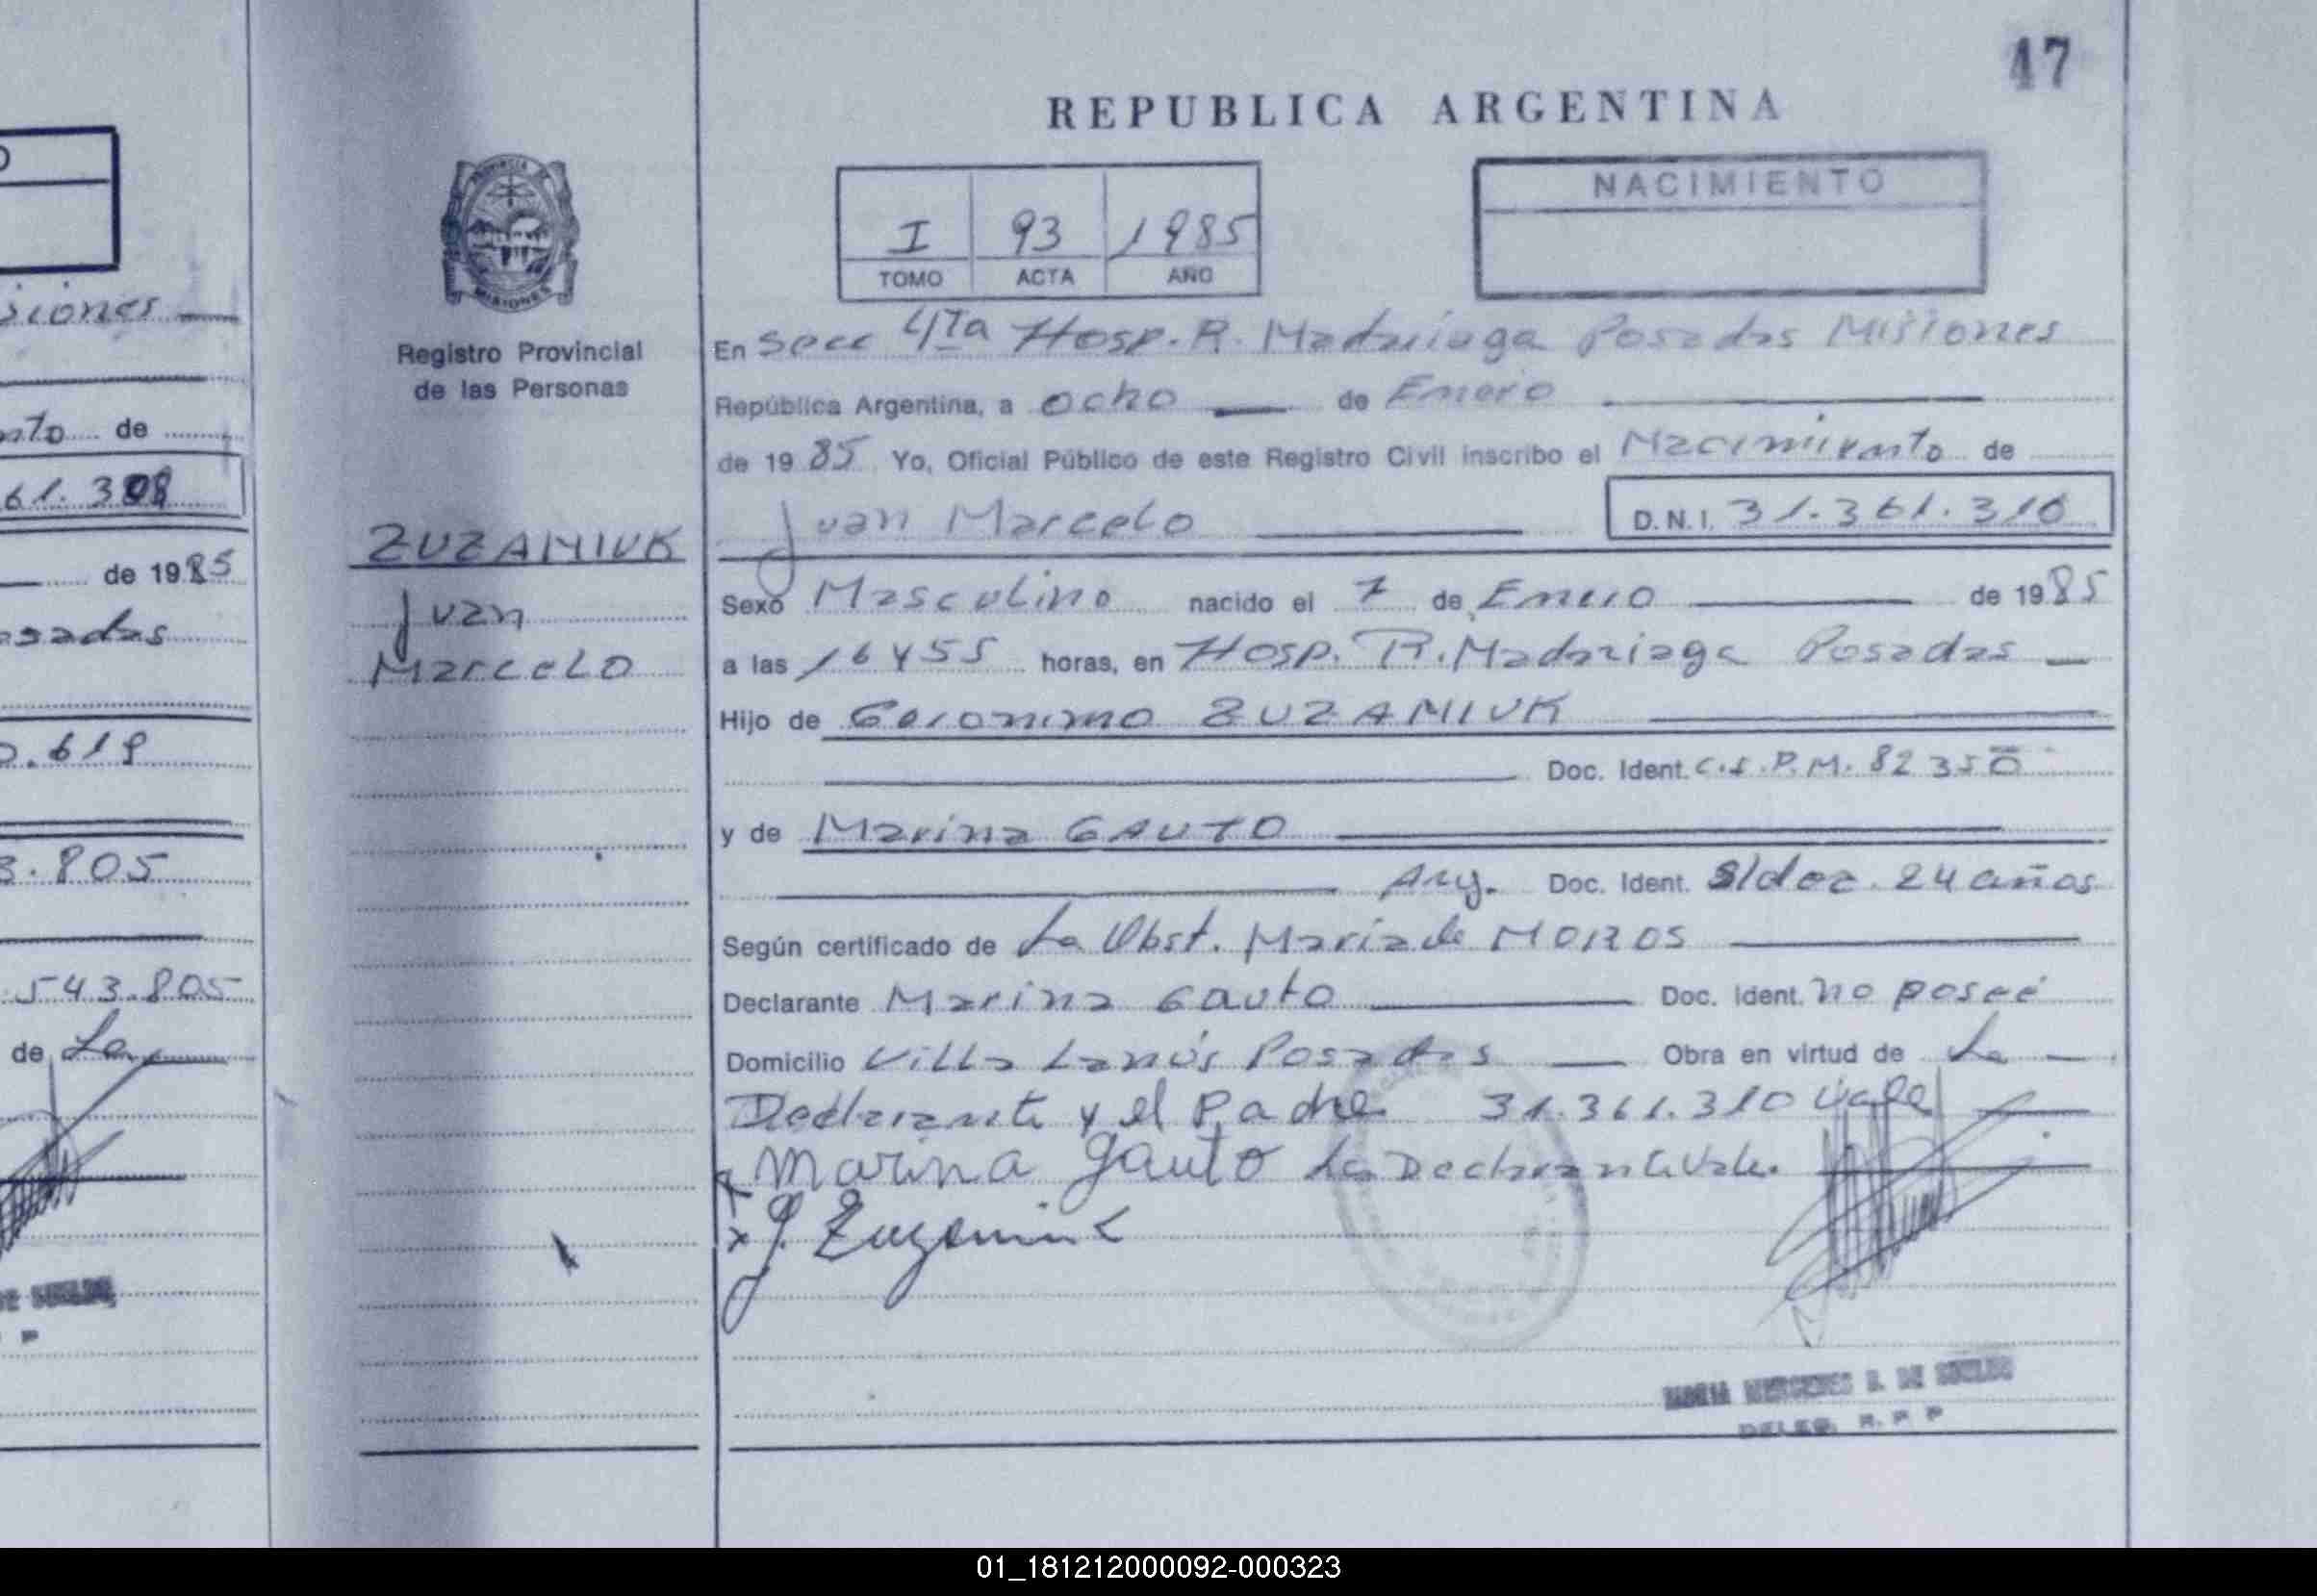 47
REPUBLICA ARGENTINA
NACIMIENTO
I 93 1985
TOMO ACTA AÑO
PROVINCIA DE
MISIONES
Registro Provincial
de las Personas
ZUZAMIUK
Juan
Marcelo
En Secc 4Ta Hosp. R. Madariaga Posadas Misiones
República Argentina, a ocho de Enero
de 1985 Yo, Oficial Público de este Registro Civil inscribo el Nacimiento de
Juan Marcelo D.N.I. 31.361.310
Sexo Masculino nacido el 7 de Enero de 1985
a las 16 y 55 horas, en Hosp. R. Madariaga Posadas
Hijo de Geronimo ZUZAMIUK
Doc. Ident. C.I.P.M. 82350
y de Marina GAUTO
Arg. Doc. Ident. S/doc. 24 años
Según certificado de La Obst. Maria de MOROS
Declarante Marina Gauto Doc. Ident. no poseé
Domicilio Villa Lanús Posadas Obra en virtud de La
Declarante y el Padre 31.361.310 Vale
x Marina Gauto La Declarante Vale.
x J. Zuzamiuk
MARIA MERCEDES R. DE
DELEG. R. P. P
siones
nto de
61.308
de 1985
osadas
0.619
3.805
543.805
de La
DE
P
01_181212000092-000323